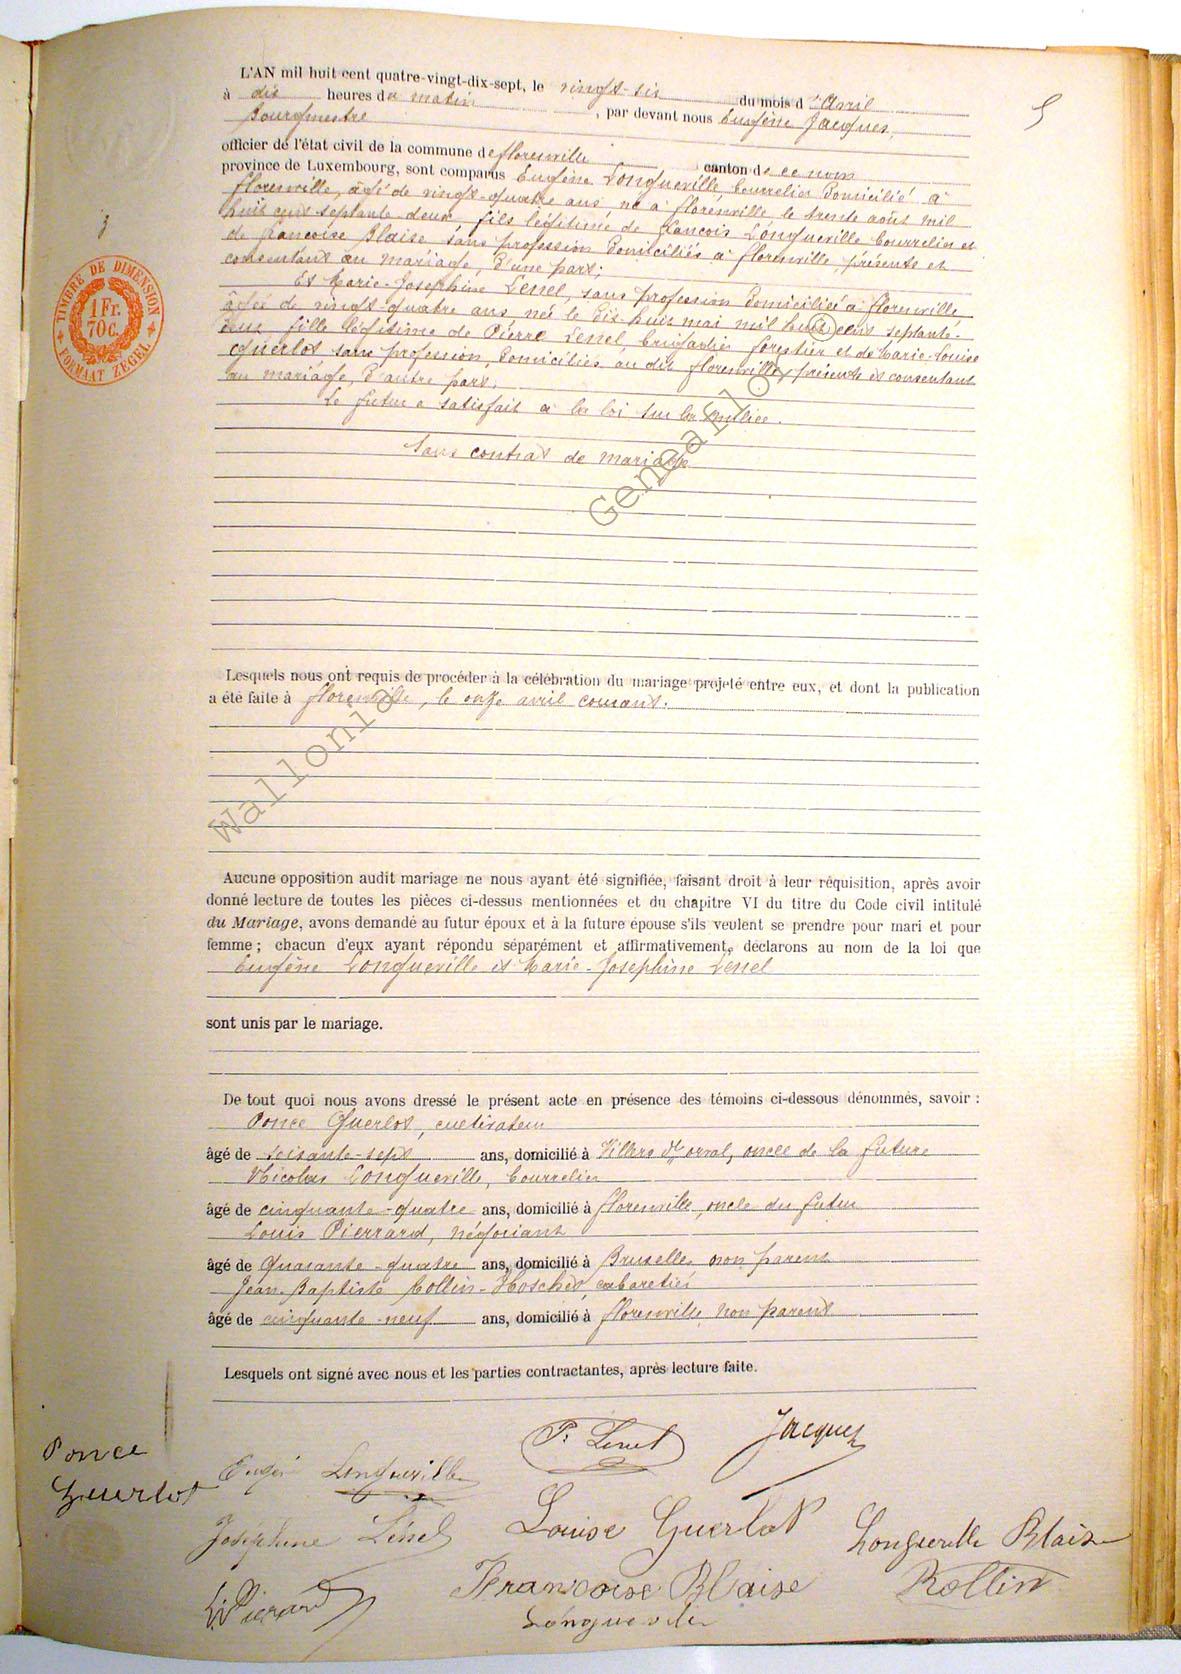 5
L'AN mil huit cent quatre-vingt-dix-sept, le vingt-six du mois d'Avril
à dix heures du matin, par devant nous Eugène Jacques,
Bourgmestre
officier de l'état civil de la commune de florenville canton de ce nom
province de Luxembourg, sont comparus Eugène Longueville bourrelier domicilié à
florenville, âgé de vingt-quatre ans né à florenville le trente août mil
huit cent septante-deux fils légitime de francois Longueville bourrelier et
de francoise Blaise sans profession domiciliés à florenville, présents et
consentant au mariage, d'une part;
Et Marie-Josephine Lenel, sans profession domiciliée à florenville
âgée de vingt-quatre ans née le dix-huit mai mil huit cent septante-
deux fille légitime de Pierre Lenel brigadier forestier et de Marie-Louise
Guerlot sans profession, domiciliés au dit florenville, présents et consentant
au mariage, d'autre part.
Le futur a satisfait à la loi sur la milice.
Sans contrat de mariage
TIMBRE DE DIMENSION
1 Fr.
70 c.
FORMAAT ZEGEL
Lesquels nous ont requis de procéder à la célébration du mariage projeté entre eux, et dont la publication
a été faite à florenville, le onze avril courant.
Wallonia Genearloo
Aucune opposition audit mariage ne nous ayant été signifiée, faisant droit à leur réquisition, après avoir
donné lecture de toutes les pièces ci-dessus mentionnées et du chapitre VI du titre du Code civil intitulé
du Mariage, avons demandé au futur époux et à la future épouse s'ils veulent se prendre pour mari et pour
femme ; chacun d'eux ayant répondu séparément et affirmativement, déclarons au nom de la loi que
Eugène Longueville et Marie-Josephine Lenel
sont unis par le mariage.
De tout quoi nous avons dressé le présent acte en présence des témoins ci-dessous dénommés, savoir :
Ponce Guerlot, cultivateur
âgé de soixante-sept ans, domicilié à Villers dt orval, oncle de la future
Nicolas Longueville, bourrelier
âgé de cinquante-quatre ans, domicilié à florenville, oncle du futur
Louis Pierrard, négociant
âgé de quarante-quatre ans, domicilié à Bruxelles non parent
Jean-Baptiste Rollin-Hoschet, cabaretier
âgé de cinquante-neuf ans, domicilié à florenville non parent
Lesquels ont signé avec nous et les parties contractantes, après lecture faite.
P. Lenel Jacques
Ponce Guerlot
Longueville
Joséphine Lénel Louise Guerlot Longueville Blaise
Pierard Françoise Blaise Rollin
Longueville